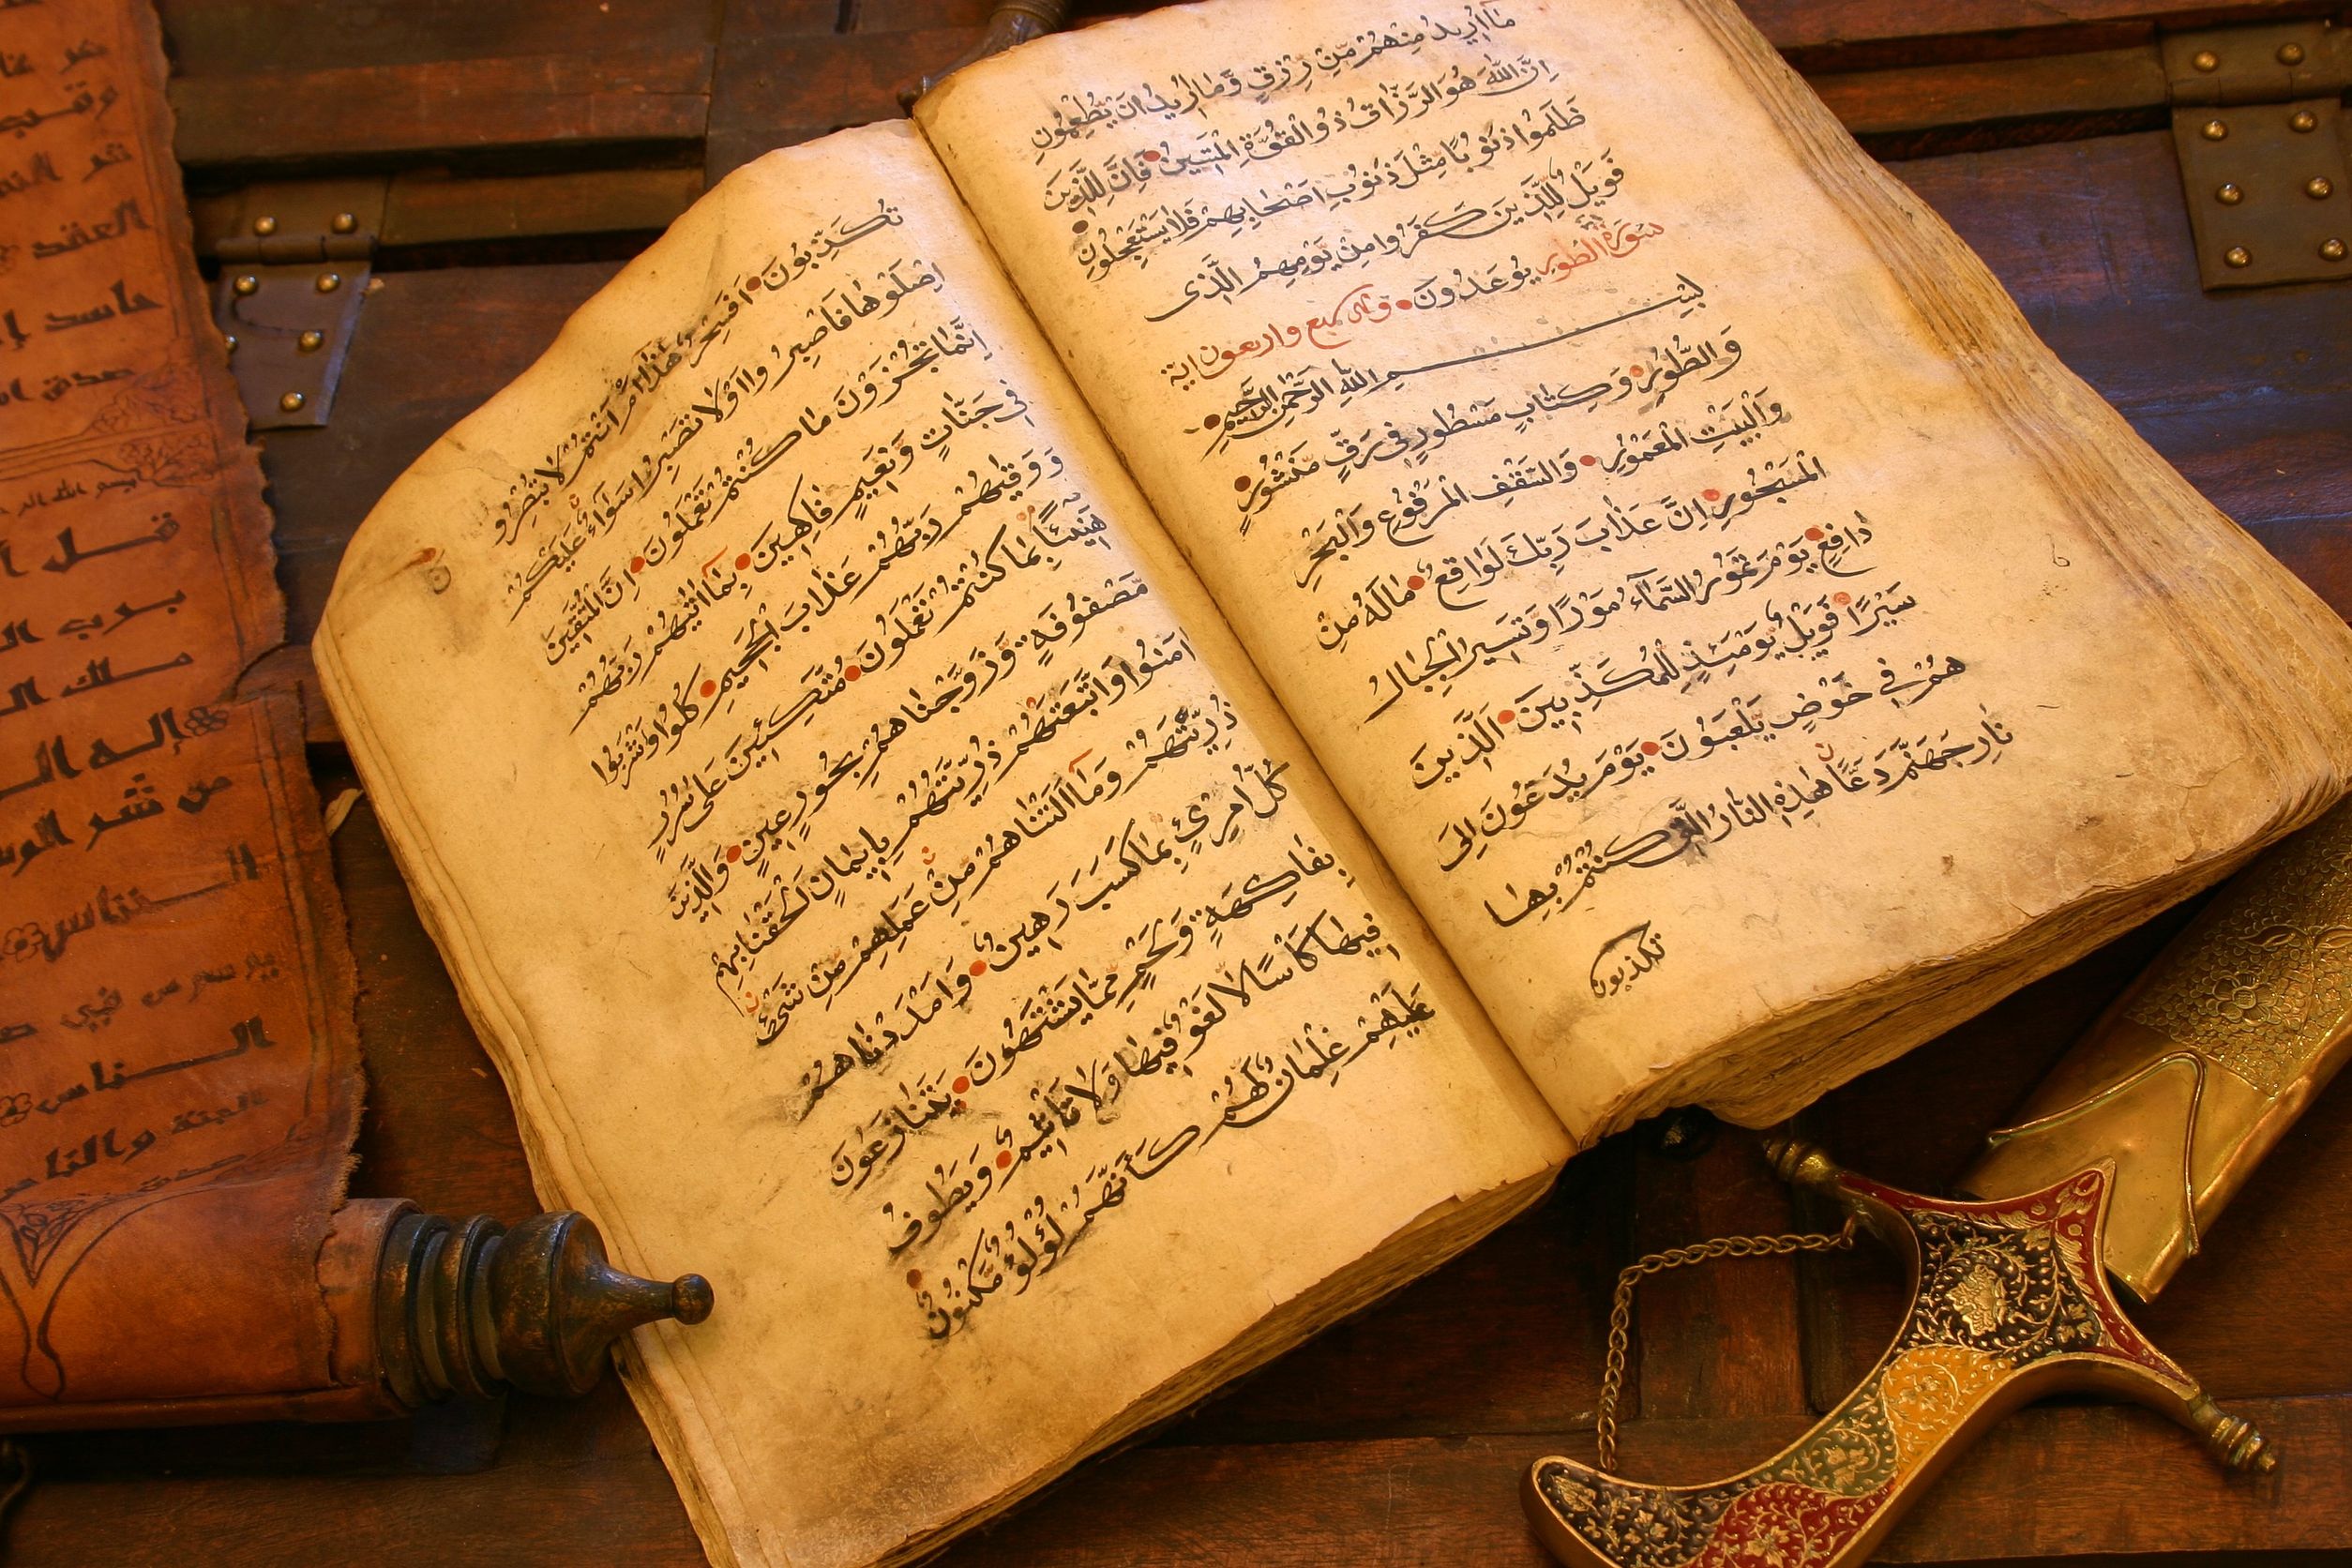 ما أُرِيدُ مِنْهُمْ مِنْ رِزْقٍ وَمَا أُرِيدُ اَنْ يُطْعِمُونِ
اِنَّ اللّٰهَ هُوَ الرَّزَّاقُ ذُو الْقُوَّةِ الْمَتِينُ فَاِنَّ لِلَّذِينَ
ظَلَمُوا ذَنُوبًا مِثْلَ ذَنُوبِ اَصْحَابِهِمْ فَلَا يَسْتَعْجِلُونِ
فَوَيْلٌ لِلَّذِينَ كَفَرُوا مِنْ يَوْمِهِمُ الَّذِى
سورة الطور يُوعَدُونَ وهى سبع واربعون اية
بِسْمِ اللّٰهِ الرَّحْمٰنِ الرَّحِيمِ
وَالطُّورِ وَكِتَابٍ مَسْطُورٍ فِى رَقٍّ مَنْشُورٍ
وَالْبَيْتِ الْمَعْمُورِ وَالسَّقْفِ الْمَرْفُوعِ وَالْبَحْرِ
الْمَسْجُورِ اِنَّ عَذَابَ رَبِّكَ لَوَاقِعٌ مَا لَهُ مِنْ
دَافِعٍ يَوْمَ تَمُورُ السَّمَآءُ مَوْرًا وَتَسِيرُ الْجِبَالُ
سَيْرًا فَوَيْلٌ يَوْمَئِذٍ لِلْمُكَذِّبِينَ اَلَّذِينَ
هُمْ فِى خَوْضٍ يَلْعَبُونَ يَوْمَ يُدَعُّونَ اِلَى
نَارِ جَهَنَّمَ دَعًّا هٰذِهِ النَّارُ الَّتِى كُنْتُمْ بِهَا
تكذبون
تُكَذِّبُونَ اَفَسِحْرٌ هٰذَا اَمْ اَنْتُمْ لَا تُبْصِرُو
ن
اِصْلَوْهَا فَاصْبِرُوا اَوْ لَا تَصْبِرُوا سَوَآءٌ عَلَيْكُمْ
اِنَّمَا تُجْزَوْنَ مَا كُنْتُمْ تَعْمَلُونَ اِنَّ الْمُتَّقِينَ
فِى جَنَّاتٍ وَنَعِيمٍ فَاكِهِينَ بِمَا اٰتٰيهُمْ رَبُّهُمْ
وَوَقٰيهُمْ رَبُّهُمْ عَذَابَ الْجَحِيمِ كُلُوا وَاشْرَبُوا
هَنِيئًا بِمَا كُنْتُمْ تَعْمَلُونَ مُتَّكِئِينَ عَلَى سُرُرٍ
مَصْفُوفَةٍ وَزَوَّجْنَاهُمْ بِحُورٍ عِينٍ وَالَّذِينَ
اٰمَنُوا وَاتَّبَعَتْهُمْ ذُرِّيَّتُهُمْ بِاِيمَانٍ اَلْحَقْنَا بِهِمْ
ذُرِّيَّتَهُمْ وَمَا اَلَتْنَاهُمْ مِنْ عَمَلِهِمْ مِنْ شَىْءٍ
كُلُّ امْرِئٍ بِمَا كَسَبَ رَهِينٌ وَاَمْدَدْنَاهُمْ
بِفَاكِهَةٍ وَلَحْمٍ مِمَّا يَشْتَهُونَ يَتَنَازَعُونَ
فِيهَا كَأْسًا لَا لَغْوٌ فِيهَا وَلَا تَأْثِيمٌ وَيَطُوفُ
عَلَيْهِمْ غِلْمَانٌ لَهُمْ كَاَنَّهُمْ لُؤْلُؤٌ مَكْنُونٌ
العقد
حاسد
قل
برب
ملك
إله
من شر
الخناس
الناس
الجنة والناس